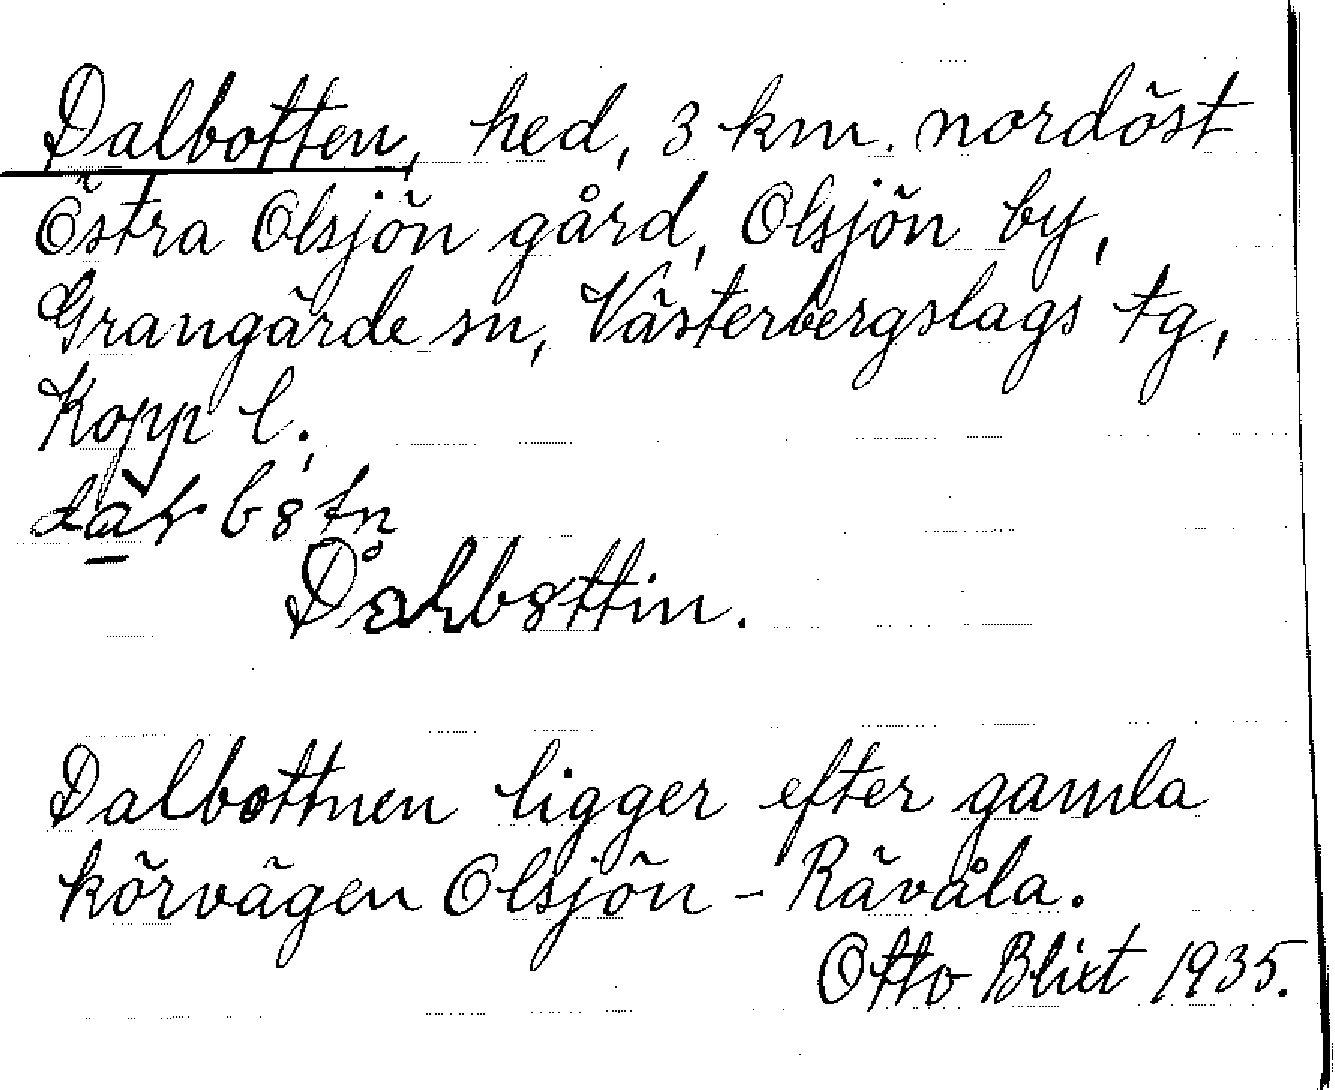 Dalbotten, hed, 3 km. nordöst
Östra Olsjön gård, Olsjön by,
Grangärde sn, Västerbergslags tg,
Kopp l.;
Dalbottnen ligger efter gamla
körvägen Olsjön - Rävåla.
Otto Blixt 1935.